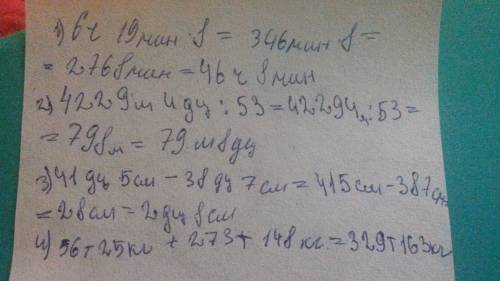 1) 6ч 19мин · 8 = 346мин · 8 =
= 2768мин = 46ч 8мин
2) 4229м 4дц : 53 = 42294дц : 53 =
= 798м = 79м 8дц
3) 41дц 5см - 38дц 7см = 415см - 387см
= 28см = 2дц 8см
4) 56т 25кг + 273т 148кг = 329т 163кг